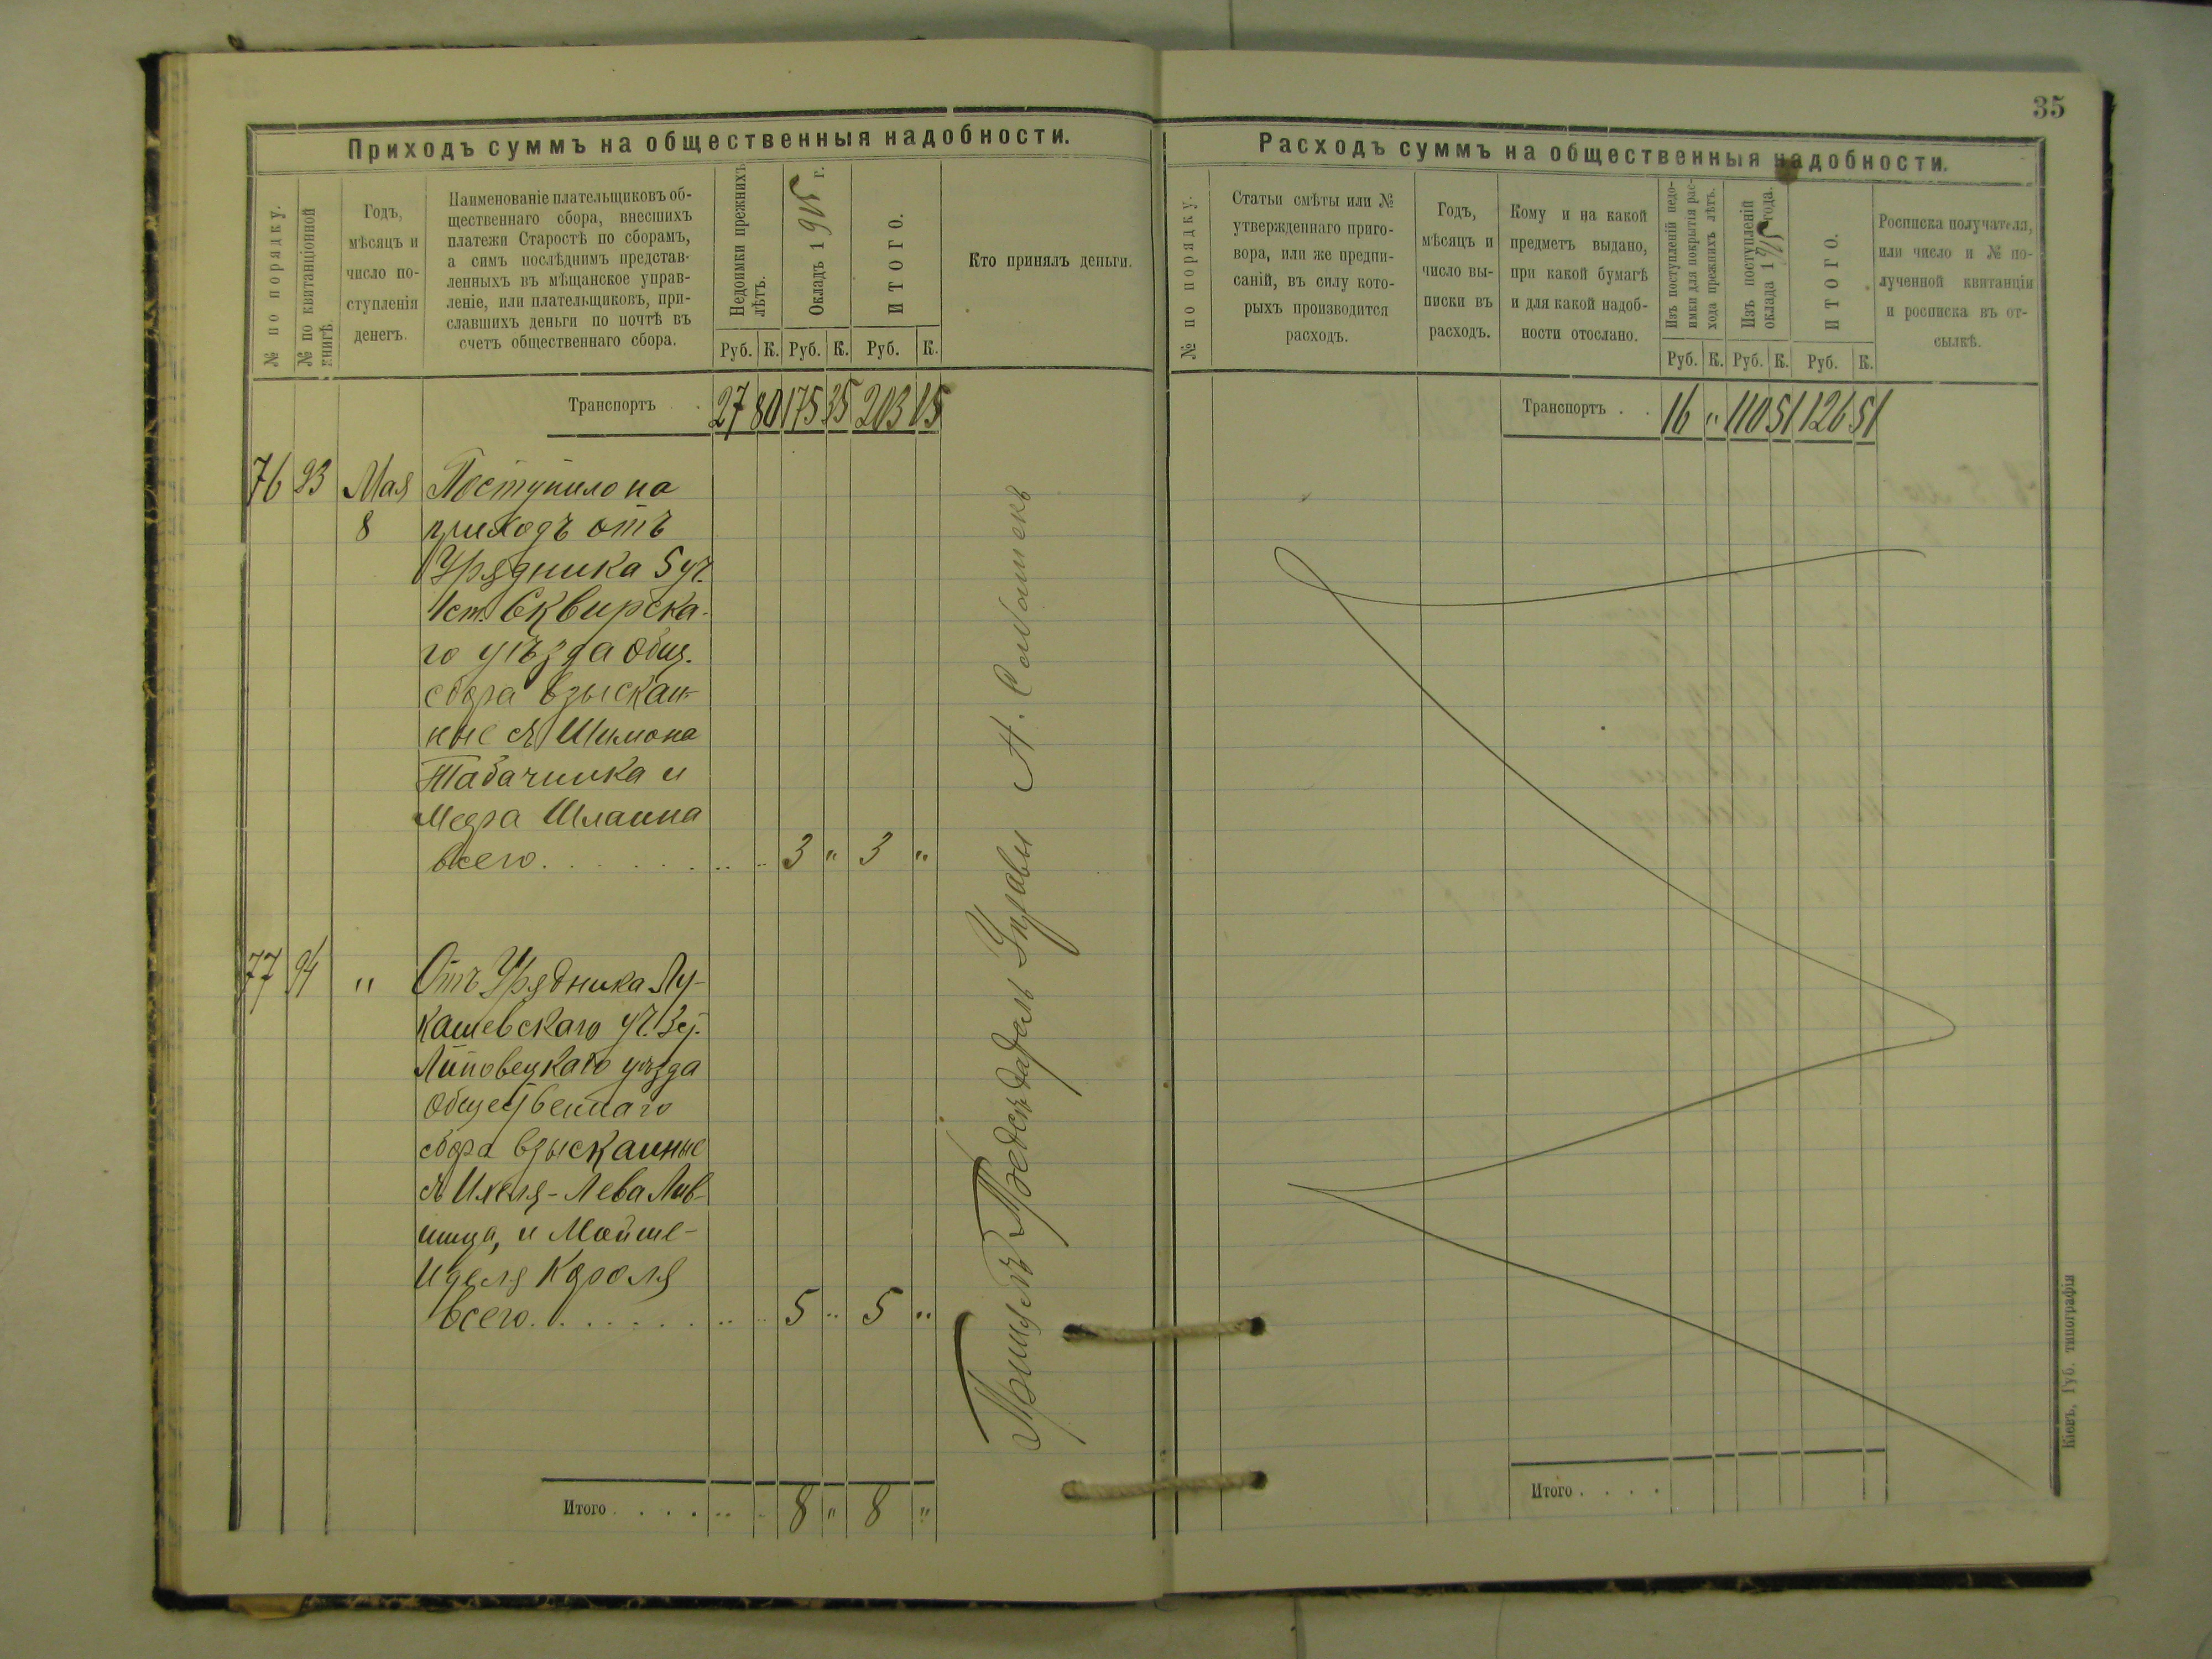 35
Приходъ суммъ на общественныя надобности.
№ по порядку.
№ по квитанціонной
книгѣ.
Годъ,
мѣсяцъ и
число по-
ступленія
денегъ.
Наименованіе плательщиковъ об-
щественнаго сбора, внесшихъ
платежи Старостѣ по сборамъ,
а симъ послѣднимъ представ-
ленныхъ въ мѣщанское управ-
леніе, или плательщиковъ, при-
славшихъ деньги по почтѣ въ
счетъ общественнаго сбора.
Недоимки прежнихъ
лѣтъ.
Окладъ 1915 г.
ИТОГО.
Руб. К. Руб. К. Руб. К.
Кто принялъ деньги.
Транспортъ . . 27 80 175 35 203 15
76 93 Мая Поступило на
8 приходъ отъ
Урядника 5 уч.
1 ст. Сквирска-
го уѣзда общ.
сбора взыскан-
ные съ Шимона
Табачника и
Меера Шлаина
всего . . . . . . . 3 " 3 "
77 94 " Отъ Урядника Лу-
кашевскаго уч.
Липовецкаго уѣзда
Общественнаго
сбора взысканные
съ Ихеля-Лева Лив-
шица, и Мойше-
Иделя Короля
всего . . . . . . . 5 " 5 "
Итого . . . . 8 " 8 "
Предсѣдатель Управы
Расходъ суммъ на общественныя надобности.
№ по порядку.
Статьи смѣты или №
утвержденнаго приго-
вора, или же предпи-
саній, въ силу кото-
рыхъ производится
расходъ.
Годъ,
мѣсяцъ и
число вы-
писки въ
расходъ.
Кому и на какой
предметъ выдано,
при какой бумагѣ
и для какой надоб-
ности отослано.
Изъ поступленій недо-
имки для покрытія рас-
хода прежнихъ лѣтъ.
Изъ поступленій
оклада 1915 года.
ИТОГО.
Руб. К. Руб. К. Руб. К.
Росписка получателя,
или число и № по-
лученной квитанціи
и росписка въ от-
сылкѣ.
Транспортъ . . 16 " 110 51 126 51
Итого . . . .
Кіевъ, Губ. типографія